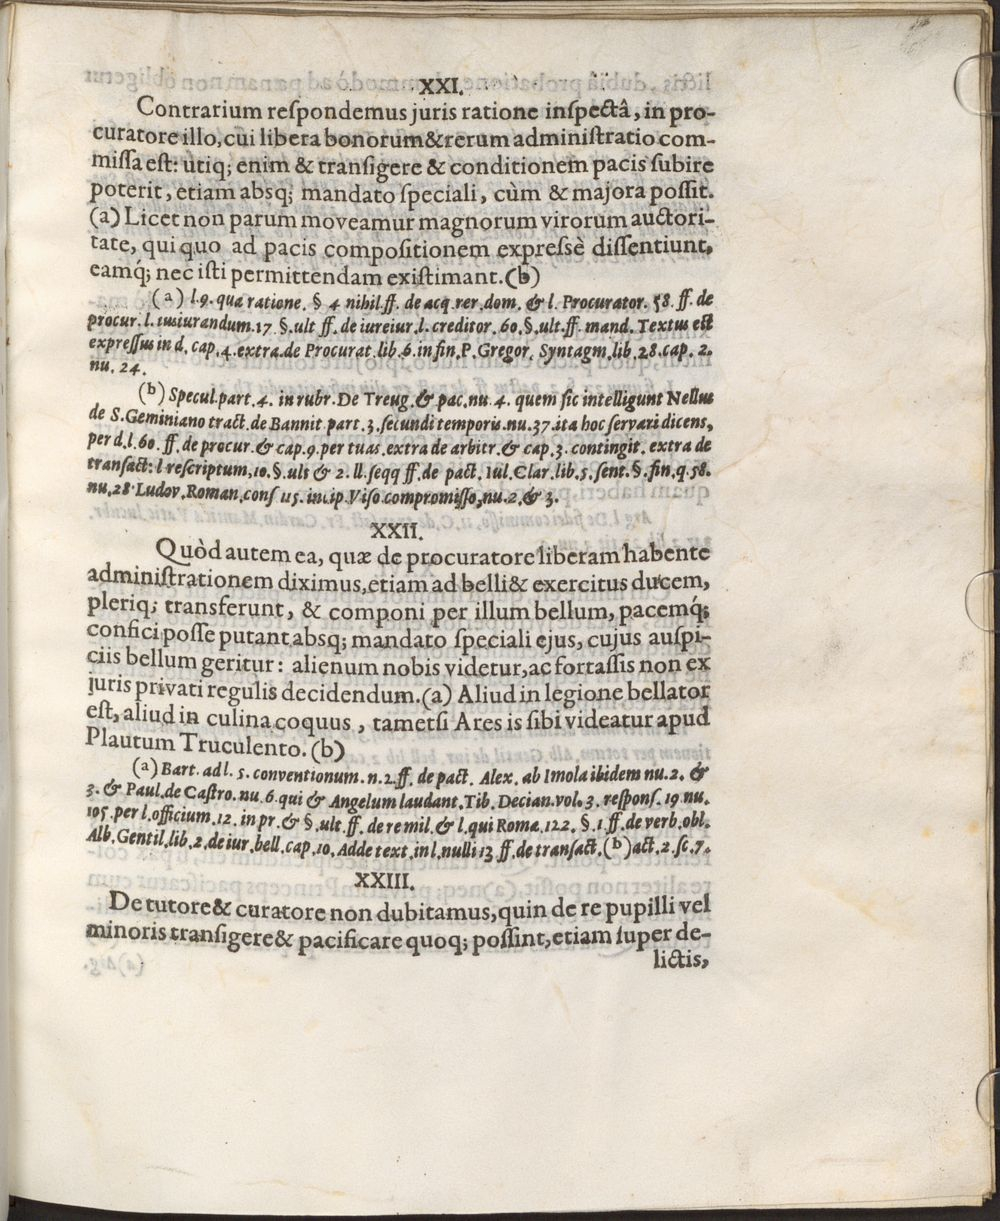 XXI.
Contrarium reſpondemus juris ratione inſpectâ, in pro-
curatore illo, cui libera bonorum & rerum adminiſtratio com-
miſſa eſt: utiq; enim & tranſigere & conditionem pacis ſubire
poterit, etiam absq; mandato ſpeciali, cùm & majora poſſit.
(a) Licet non parum moveamur magnorum virorum auctori-
tate, qui quo ad pacis compoſitionem expreſsè diſſentiunt,
eamq; nec iſti permittendam exiſtimant. (b)
(a) l. 9. qua ratione. § 4 nihil. ff. de acq. rer. dom. & l. Procurator. 58. ff. de
procur. l. iusiurandum. 17 §. ult ff. de iureiur. l. creditor. 60. §. ult. ff. mand. Textus eſt
expreſſus in d. cap. 4. extra. de Procurat. lib. 6. in fin. P. Gregor. Syntagm. lib. 28. cap. 2.
nu. 24.
(b) Specul. part. 4. in rubr. De Treug. & pac. nu. 4. quem ſic intelligunt Nellus
de S. Geminiano tract. de Bannit part. 3. ſecundi temporis. nu. 37. ita hoc ſervari dicens,
per d. l. 60. ff. de procur. & cap. 9. per tuas. extra de arbitr. & cap. 3. contingit. extra de
tranſact: l reſcriptum, 10. §. ult & 2. ll. seqq ff. de pact. Iul. Clar. lib. 5. ſent. §. fin. q. 58.
nu. 28 Ludov. Roman. conſ 115. incip. Viſo compromiſſo, nu. 2. & 3.
XXII.
Quòd autem ea, quæ de procuratore liberam habente
adminiſtrationem diximus, etiam ad belli & exercitus ducem,
pleriq; transferunt, & componi per illum bellum, pacemq́;
confici poſſe putant absq; mandato ſpeciali ejus, cujus auſpi-
ciis bellum geritur: alienum nobis videtur, ac fortaſſis non ex
juris privati regulis decidendum. (a) Aliud in legione bellator
eſt, aliud in culina coquus, tametſi Ares is ſibi videatur apud
Plautum Truculento. (b)
(a) Bart. ad l. 5. conventionum. n. 2. ff. de pact. Alex. ab Imola ibidem nu. 2. &
3. & Paul. de Caſtro. nu. 6 qui & Angelum laudant. Tib. Decian. vol. 3. reſponſ. 19 nu.
105. per l. officium. 12. in pr. & §. ult. ff. de re mil. & l. qui Roma. 122. §. 1. ff. de verb. obl.
Alb. Gentil. lib. 2. de iur. bell. cap. 10. Adde text. in l. nulli 13 ff. de tranſact. (b) act. 2. ſc. 7.
XXIII.
De tutore & curatore non dubitamus, quin de re pupilli vel
minoris tranſigere & pacificare quoq; poſſint, etiam ſuper de-
lictis,